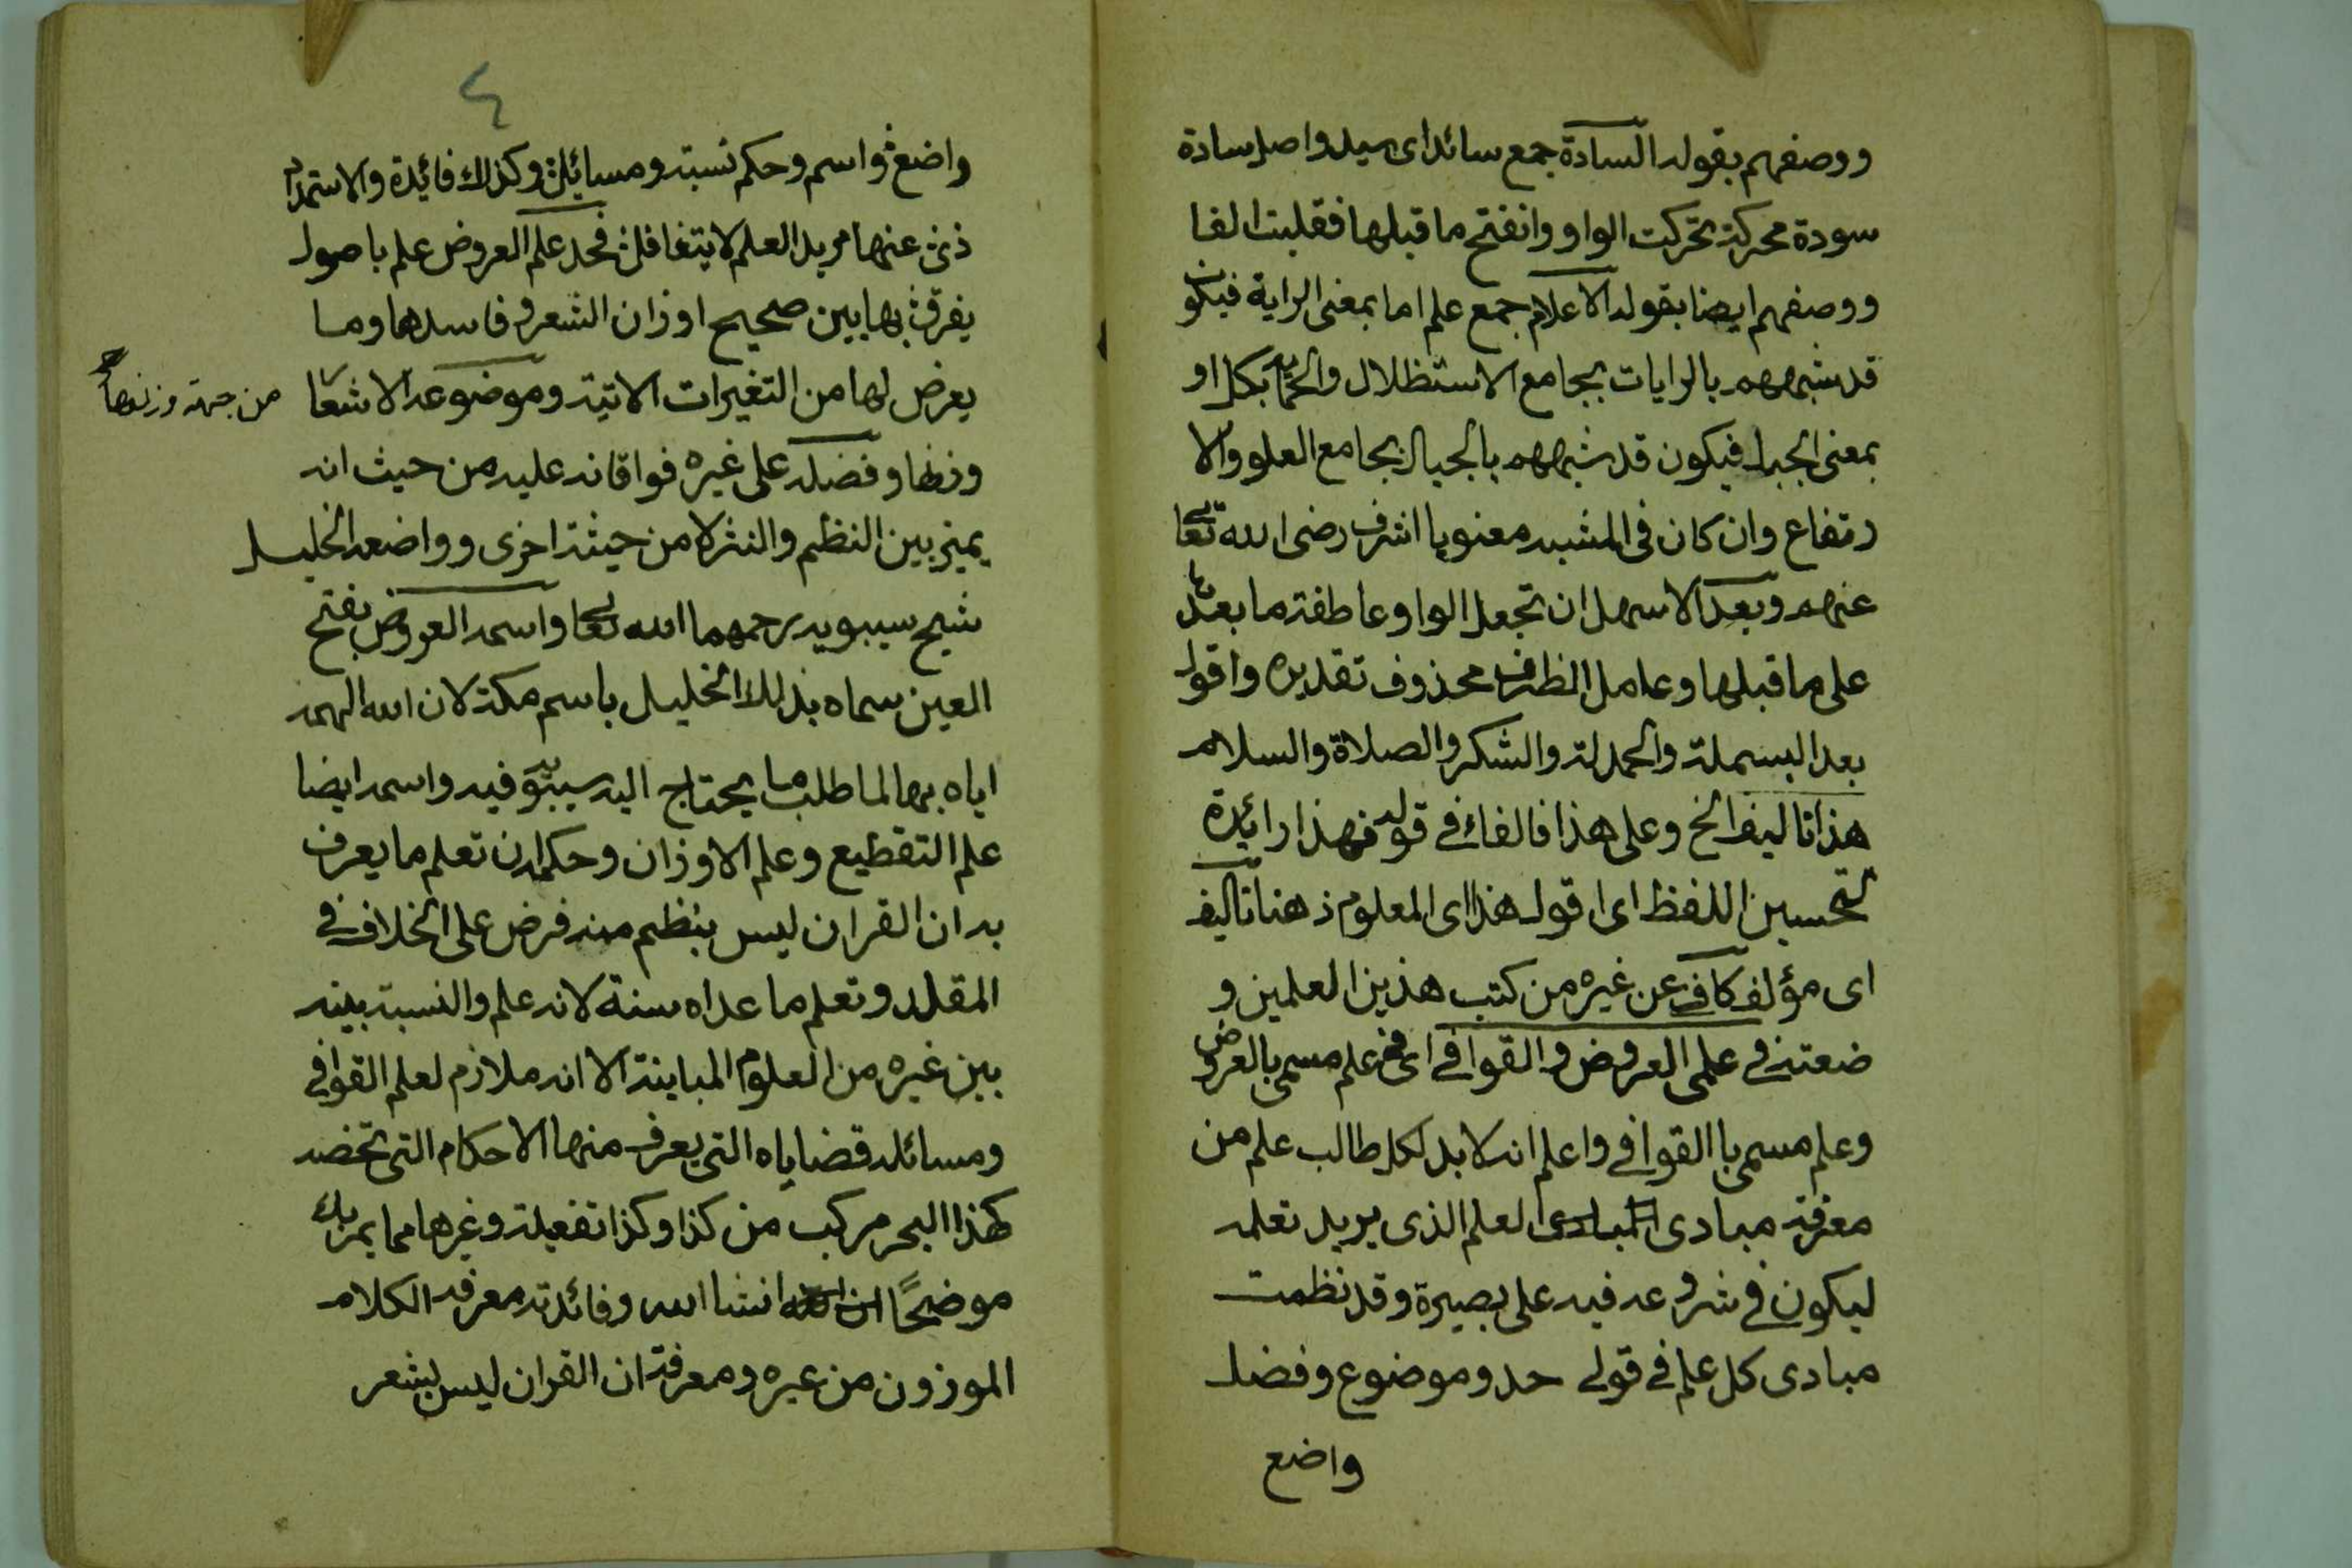 ووصفهم بقوله السادة جمع سائد اى سيد واصل سادة
سودة محركة تحركت الواو وانفتح ما قبلها فقلبت الفا
ووصفهم ايضا بقوله الاعلام جمع علم اما بمعنى الراية فيكون
قد شبههم بالرايات بجامع الاستظلال بكل او
بمعنى الجبل فيكون قد شبههم بالجبال بجامع العلو والا
رتفاع وان كان فى المشبه معنويا اشرف رضى الله تعا
عنهم وبعد الاسهل ان تجعل الواو عاطفة ما بعدها
على ما قبلها وعامل الظرف محذوف تقديره واقول
بعد البسملة والحمدلة والشكر والصلاة والسلام
هذا تاليف الخ وعلى هذا فالفاء في قوله فهذا زائدة
لتحسين اللفظ اى اقول هذا اى المعلوم ذهنا تاليف
اى مؤلف كافي عن غيره من كتب هذين العلمين و
ضعته في علمى العروض والقوافي اى في علم مسمى بالعروض
وعلم مسمى با القوافي واعلم انه لا بد لكل طالب علم من
معرفة مبادى المبادى العلم الذى يريد تعلمه
ليكون في شروعه فيه على بصيرة وقد نظمت
مبادى كل علم في قولى حد وموضوع وفضل
واضع
٤
واضعٌ واسم وحكم نسبته ومسايلٌ وكذلك فائدة والاستمداد
ذى عنها مريد العلم لا يتغافلن فحد علم العروض علم باصول
يفرق بها بين صحيح اوزان الشعر وفاسدها وما
يعرض لها من التغيرات الاتية وموضوعه الاشعار
من جهة وزنها صح
وزنها وفضله على غيره فواقانه عليه من حيث انه
يميز بين النظم والنثر لا من حيثة اخرى وواضعه الخليل
شيح سيبويه رحمهما الله تعا واسمه العروض بفتح
العين سماه بذلك الخليل باسم مكة لان الله الهمه
اياه بها لما طلب ما يحتاج اليه سيبويه فيه واسمه ايضا
علم التقطيع وعلم الاوزان وحكمه ان تعلم ما يعرف
به ان القران ليس بنظم منه فرض على الخلاف في
المقلد وتعلم ما عداه سنة لانه علم والنسبة بينه
بين غيره من العلوم المباينة الا انه ملازم لعلم القوافي
ومسائله قضاياه التي يعرف منها الاحكام التى تخصه
كهذا البحر مركب من كذا وكذا تفعيلة وغيرها مما يمر بك
موضحًا انشا الله وفائدته معرفة الكلام
الموزون من غيره ومعرفة ان القران ليس بشعر